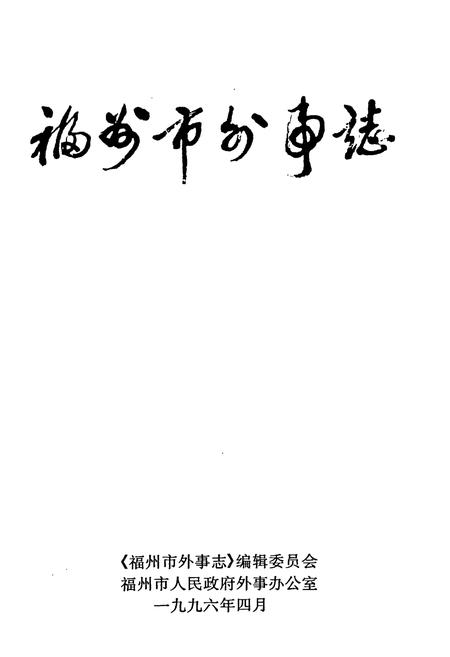 福州市外事誌
《福州市外事志》编辑委员会
福州市人民政府外事办公室
一九九六年四月